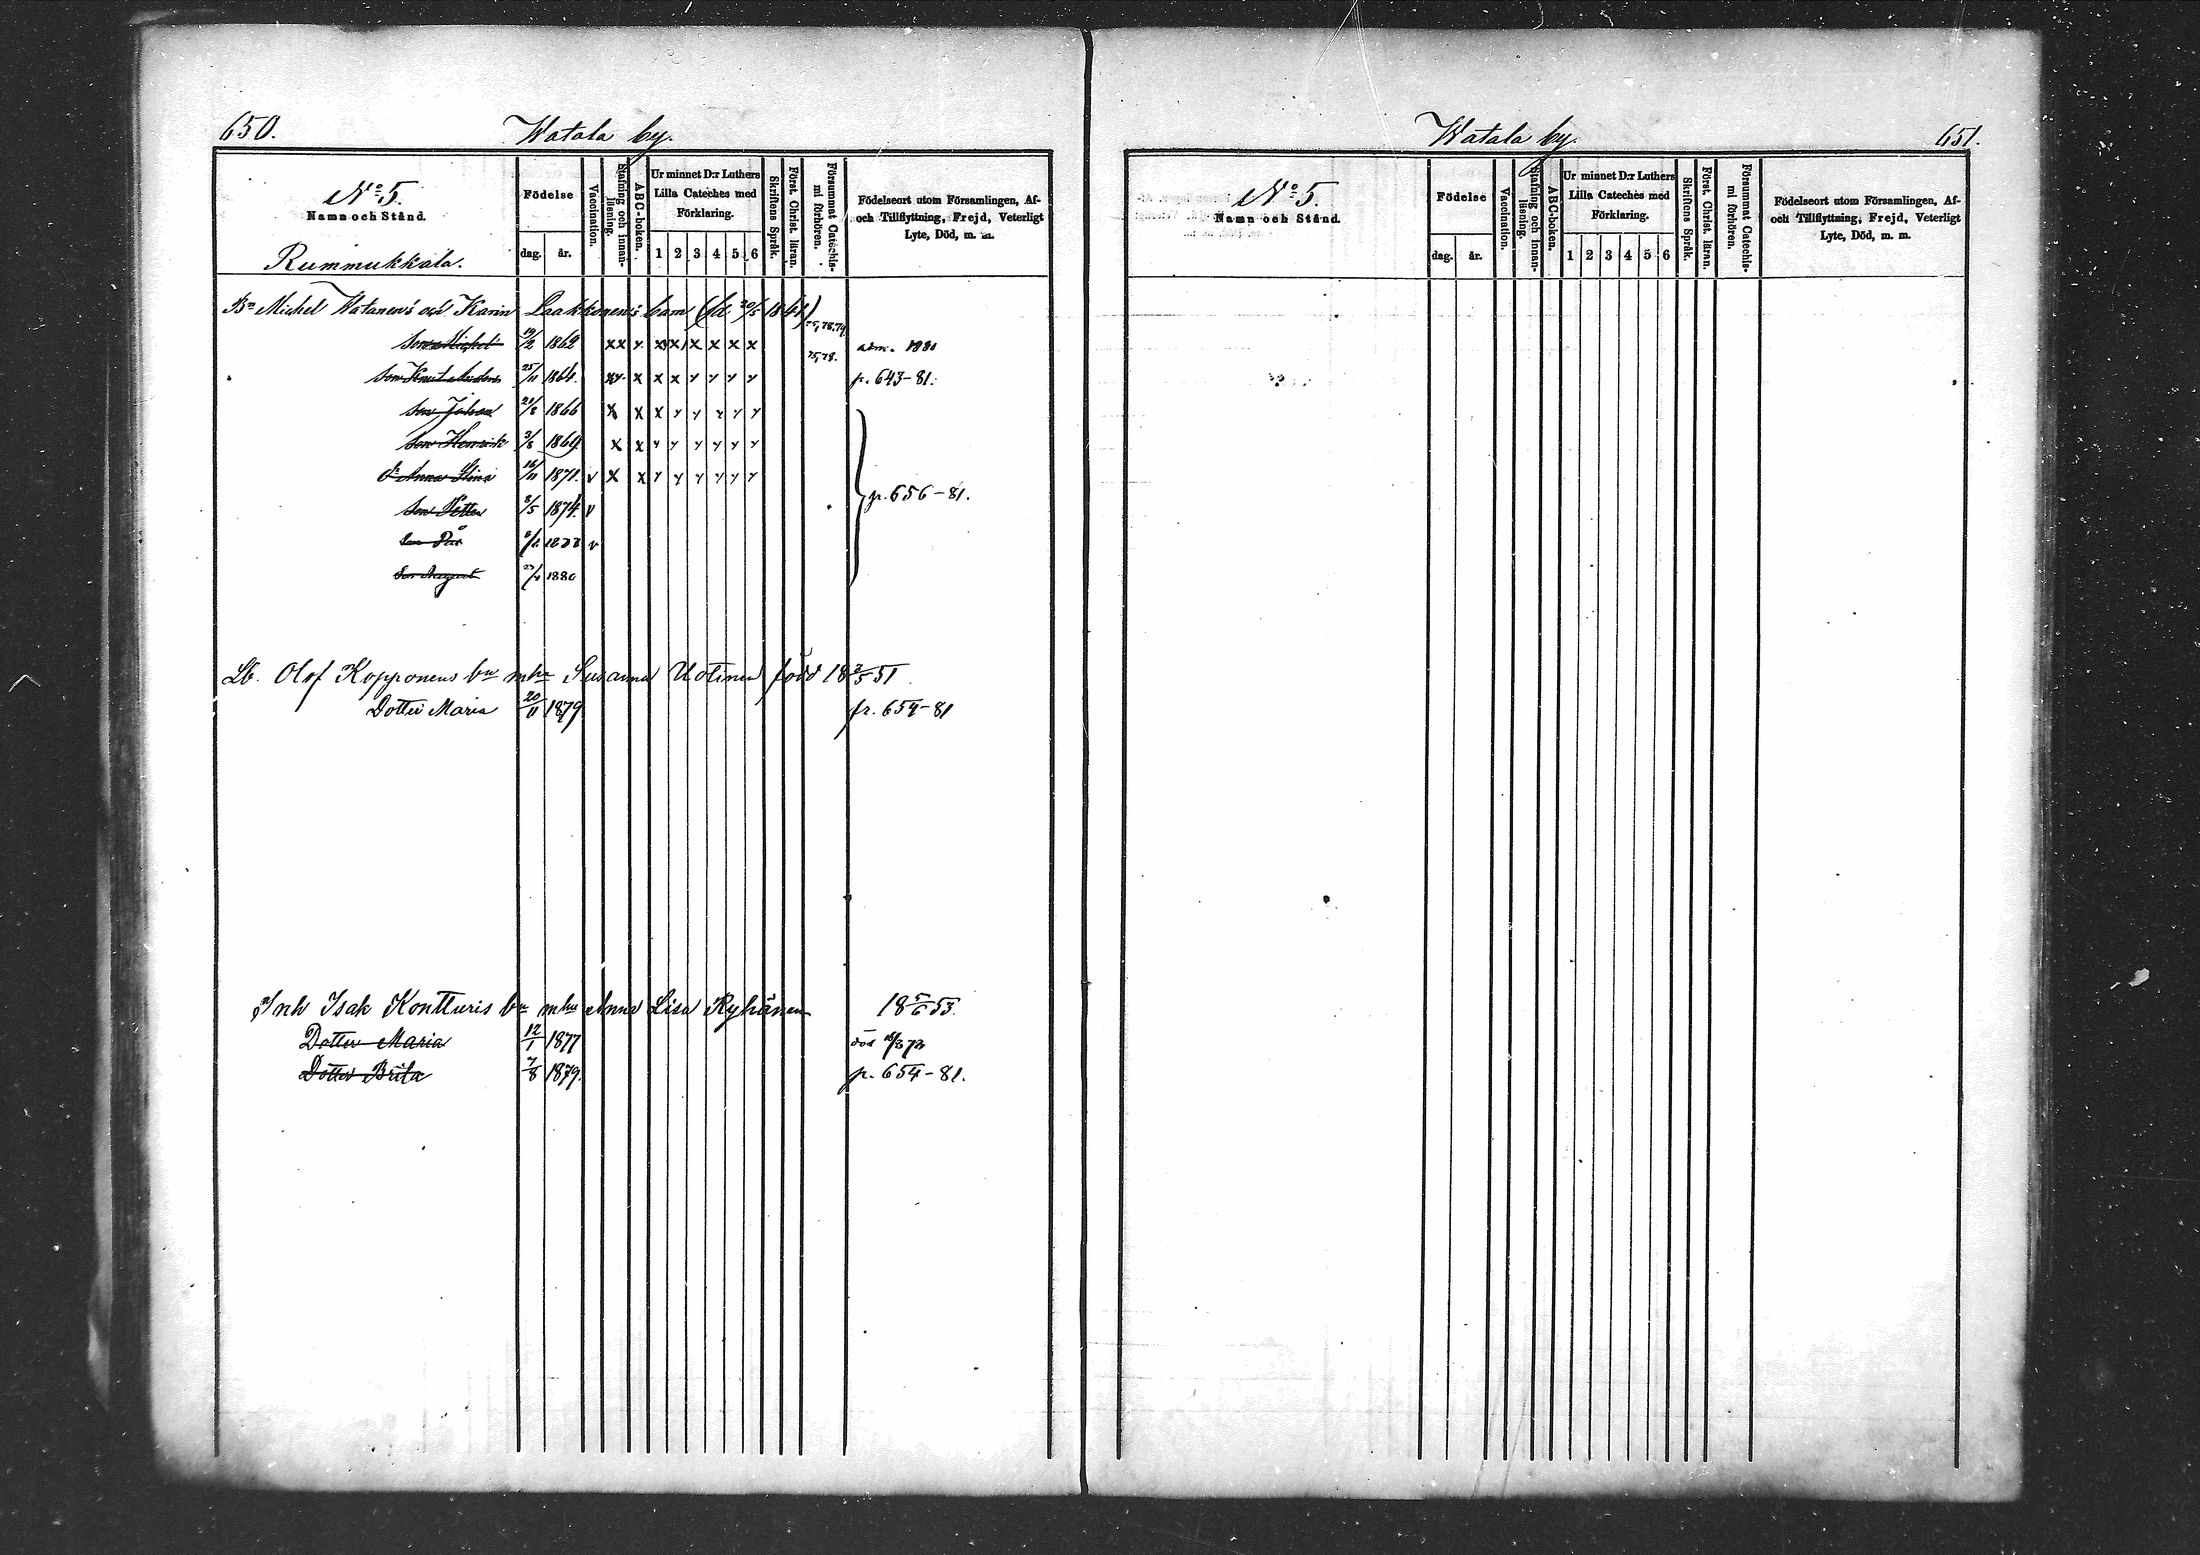 650.
Watala by.
No 5.
Namn och Stånd.
Rummukkala.
Födelse
dag.
år.
Vaccination.
Stafning och innan-
läsning.
ABC-boken.
Ur minnet D:r Luthers
Lilla Cateches med
Förklaring.
1 2 3 4 5 6
Skriftens Språk.
Först. Christ. läran.
Försummat Catechis-
mi förhören.
Födelseort utom Församlingen, Af-
och Tillflyttning, Frejd, Veterligt
Lyte, Död, m. m.
Bn Michel Watanen's och Karin Laakkonen's barn (fd. 20/5 1841)
Son Michel 19/2 1862 xx x x x x x x x 75, 78. 79. adm. 1881
Son Knut Anders 25/11 1864. xx x x x y y y y 75, 78. p. 643-81.
Son Johan 20/8 1866 x x x y y y y y
Son Henrik 3/8 1869. x x y y y y y y
dr Anna Stina 16/11 1871. v x x y y y y y y
Son Petter 8/5 1874. v p. 656-81.
Son Pår 1877 v
Son August 1880
Lb. Olof Kopponens bn mhu Susanna Uotinen född 18 3/5 51
Dotter Maria 20/11 1879 fr. 654-81
Inh Isak Kontturis bn mhu Anna Lisa Ryhänen 18 5/6 53.
Dotter Maria 12/1 1877 död
Dotter Brita 7/8 1879. p. 654-81.
Watala by.
651.
No 5.
Namn och Stånd.
Födelse
dag.
år.
Vaccination.
Stafning och innan-
läsning.
ABC-boken.
Ur minnet D:r Luthers
Lilla Cateches med
Förklaring.
1 2 3 4 5 6
Skriftens Språk.
Först. Christ. läran.
Försummat Catechis-
mi förhören.
Födelseort utom Församlingen, Af-
och Tillflyttning, Frejd, Veterligt
Lyte, Död, m. m.